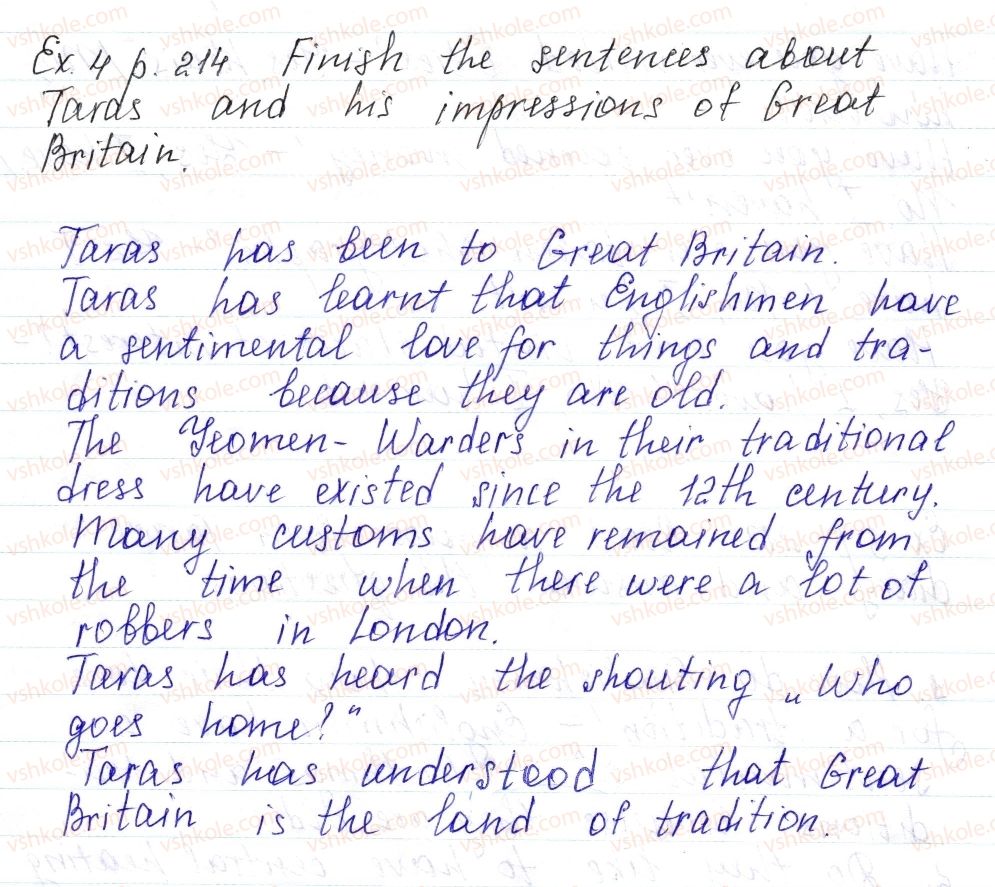 Ex. 4 p. 214 Finish the sentences about
Taras and his impressions of Great
Britain.
Taras has been to Great Britain.
Taras has learnt that Englishmen have
a sentimental love for things and tra-
ditions because they are old.
The Yeomen-Warders in their traditional
dress have existed since the 12th century.
Many customs have remained from
the time when there were a lot of
robbers in London.
Taras has heard the shouting „Who
goes home?“
Taras has understood that Great
Britain is the land of tradition.
vshkole.com